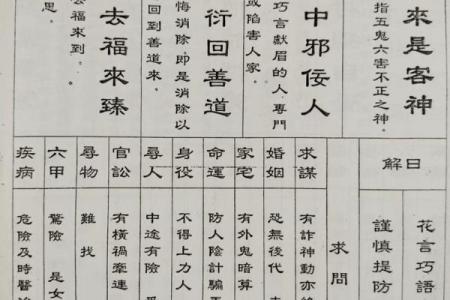 來是客神
指五鬼六害不正之神。
中邪佞人
巧言獻眉的人，專門
或陷害人家。
衍回善道
悔消除，即是消除以
回到善道來。
去福來臻
去福來到。
思。
解曰
花言巧語
謹慎提防
求問
求謀
有詐神動亦
婚姻
恐無後代
家宅
有外鬼暗算
命運
防人陰計騙
身役
不得上力人
尋人
中途有險
官訟
有橫禍牽連
尋物
難找
六甲
驚險 是女
疾病
危險及時醫